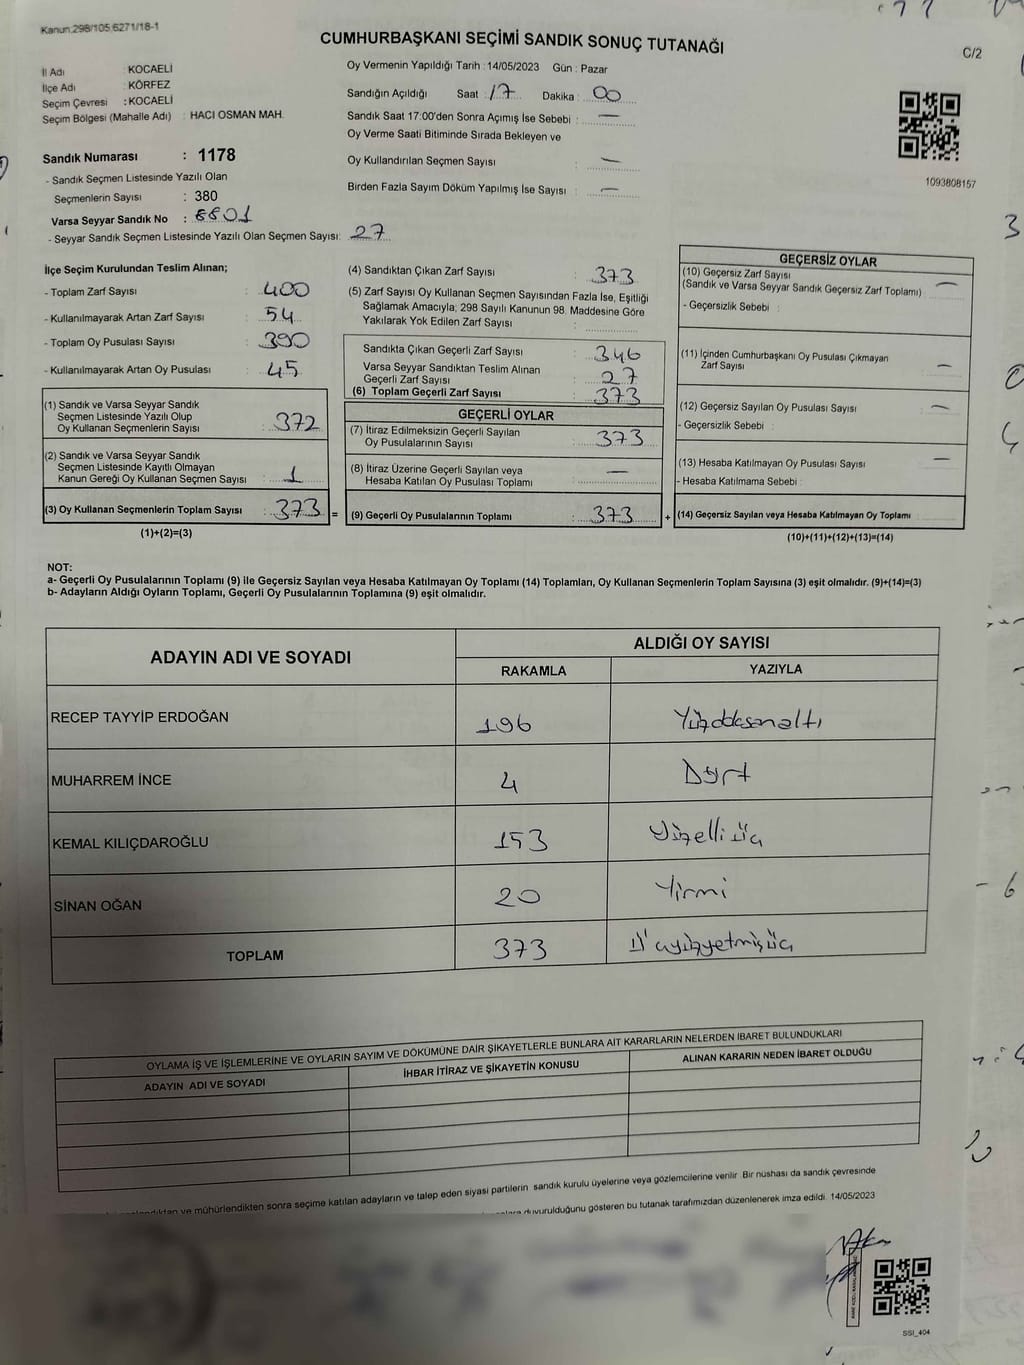 Kanun:298/105,6271/18-1
CUMHURBAŞKANI SEÇİMİ SANDIK SONUÇ TUTANAĞI
C/2
İl Adı : KOCAELİ
İlçe Adı : KÖRFEZ
Seçim Çevresi : KOCAELİ
Seçim Bölgesi (Mahalle Adı) : HACI OSMAN MAH.
Oy Vermenin Yapıldığı Tarih : 14/05/2023 Gün : Pazar
Sandığın Açıldığı Saat : 17 Dakika : 00
Sandık Saat 17:00'den Sonra Açımış İse Sebebi : —
Oy Verme Saati Bitiminde Sırada Bekleyen ve
Oy Kullandırılan Seçmen Sayısı : —
Birden Fazla Sayım Döküm Yapılmış İse Sayısı : —
1093808157
Sandık Numarası : 1178
- Sandık Seçmen Listesinde Yazılı Olan
Seçmenlerin Sayısı : 380
Varsa Seyyar Sandık No : 8801
- Seyyar Sandık Seçmen Listesinde Yazılı Olan Seçmen Sayısı: 27
İlçe Seçim Kurulundan Teslim Alınan;
- Toplam Zarf Sayısı : 400
- Kullanılmayarak Artan Zarf Sayısı : 54
- Toplam Oy Pusulası Sayısı : 390
- Kullanılmayarak Artan Oy Pusulası : 45
(1) Sandık ve Varsa Seyyar Sandık
Seçmen Listesinde Yazılı Olup
Oy Kullanan Seçmenlerin Sayısı : 372
(2) Sandık ve Varsa Seyyar Sandık
Seçmen Listesinde Kayıtlı Olmayan
Kanun Gereği Oy Kullanan Seçmen Sayısı : 1
(3) Oy Kullanan Seçmenlerin Toplam Sayısı : 373 =
(1)+(2)=(3)
(4) Sandıktan Çıkan Zarf Sayısı : 373
(5) Zarf Sayısı Oy Kullanan Seçmen Sayısından Fazla İse, Eşitliği
Sağlamak Amacıyla; 298 Sayılı Kanunun 98. Maddesine Göre
Yakılarak Yok Edilen Zarf Sayısı :
Sandıkta Çıkan Geçerli Zarf Sayısı : 346
Varsa Seyyar Sandıktan Teslim Alınan
Geçerli Zarf Sayısı : 27
(6) Toplam Geçerli Zarf Sayısı : 373
GEÇERLİ OYLAR
(7) İtiraz Edilmeksizin Geçerli Sayılan
Oy Pusulalarının Sayısı : 373
(8) İtiraz Üzerine Geçerli Sayılan veya
Hesaba Katılan Oy Pusulası Toplamı : —
(9) Geçerli Oy Pusulalarının Toplamı : 373 +
GEÇERSİZ OYLAR
(10) Geçersiz Zarf Sayısı
(Sandık ve Varsa Seyyar Sandık Geçersiz Zarf Toplamı) : —
- Geçersizlik Sebebi :
(11) İçinden Cumhurbaşkanı Oy Pusulası Çıkmayan
Zarf Sayısı : —
(12) Geçersiz Sayılan Oy Pusulası Sayısı : —
- Geçersizlik Sebebi :
(13) Hesaba Katılmayan Oy Pusulası Sayısı : —
- Hesaba Katılmama Sebebi :
(14) Geçersiz Sayılan veya Hesaba Katılmayan Oy Toplamı :
(10)+(11)+(12)+(13)=(14)
NOT:
a- Geçerli Oy Pusulalarının Toplamı (9) ile Geçersiz Sayılan veya Hesaba Katılmayan Oy Toplamı (14) Toplamları, Oy Kullanan Seçmenlerin Toplam Sayısına (3) eşit olmalıdır. (9)+(14)=(3)
b- Adayların Aldığı Oyların Toplamı, Geçerli Oy Pusulalarının Toplamına (9) eşit olmalıdır.
ADAYIN ADI VE SOYADI
ALDIĞI OY SAYISI
RAKAMLA YAZIYLA
RECEP TAYYİP ERDOĞAN 196 Yüzdoksanaltı
MUHARREM İNCE 4 Dört
KEMAL KILIÇDAROĞLU 153 Yüzelliüç
SİNAN OĞAN 20 Yirmi
TOPLAM 373 Üçyüzyetmişüç
OYLAMA İŞ VE İŞLEMLERİNE VE OYLARIN SAYIM VE DÖKÜMÜNE DAİR ŞİKAYETLERLE BUNLARA AİT KARARLARIN NELERDEN İBARET BULUNDUKLARI
ADAYIN ADI VE SOYADI İHBAR İTİRAZ VE ŞİKAYETİN KONUSU ALINAN KARARIN NEDEN İBARET OLDUĞU
ve mühürlendikten sonra seçime katılan adayların ve talep eden siyasi partilerin sandık kurulu üyelerine veya gözlemcilerine verilir. Bir nüshası da sandık çevresinde
duyurulduğunu gösteren bu tutanak tarafımızdan düzenlenerek imza edildi. 14/05/2023
SSI_404